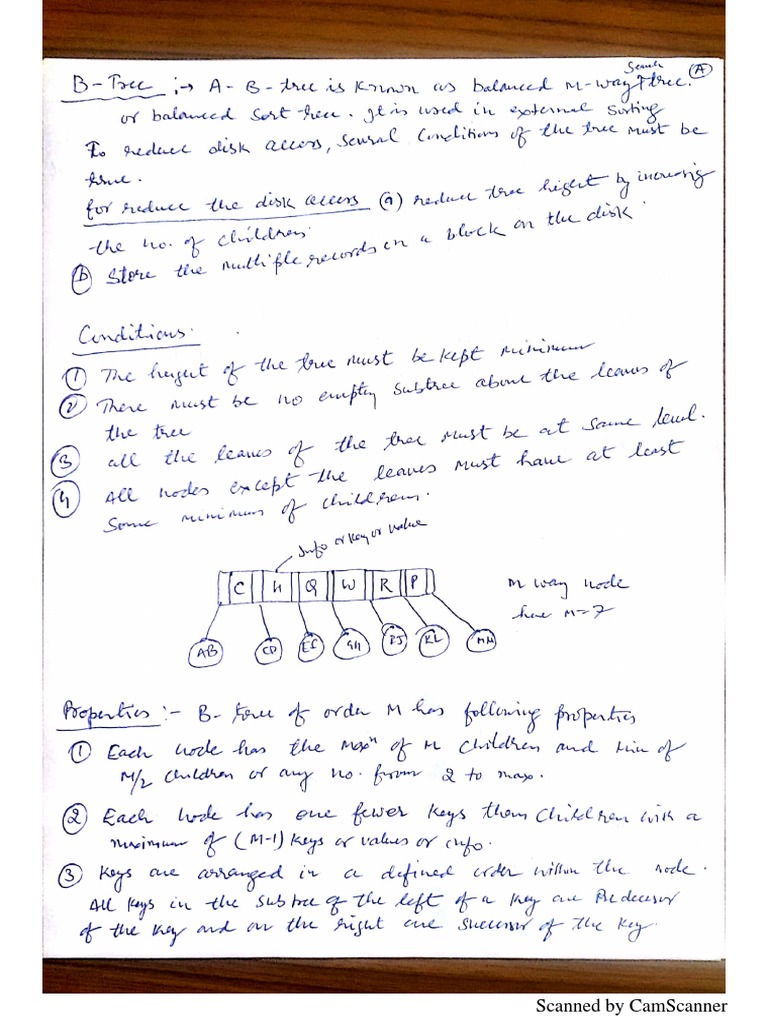 Search
B-Tree :→ A-B-tree is known as balanced M-way tree. (A)
or balanced sort tree. It is used in external sorting
To reduce disk access, several conditions of the tree must be
true.
for reduce the disk access (a) reduce tree height by increasing
the no. of children.
(b) Store the multiple records in a block on the disk.
Conditions.
(1) The height of the tree must be kept minimum
(2) There must be no empty subtree about the leaves of
the tree
(3) all the leaves of the tree must be at same level.
(4) All nodes except the leaves must have at least
some minimum of children.
Info or key or value
C H Q W R P
M way node
have M=7
AB CD EF GH IJ KL MM
Properties :- B-tree of order M has following properties
(1) Each node has the Maxm of M children and Min of
M/2 children or any no. from 2 to max.
(2) Each node has one fewer keys them children with a
maximum of (M-1) keys or values or info.
(3) Keys are arranged in a defined order within the node.
All keys in the subtree of the left of a key are Predecesor
of the key and on the right are successor of the key.
Scanned by CamScanner